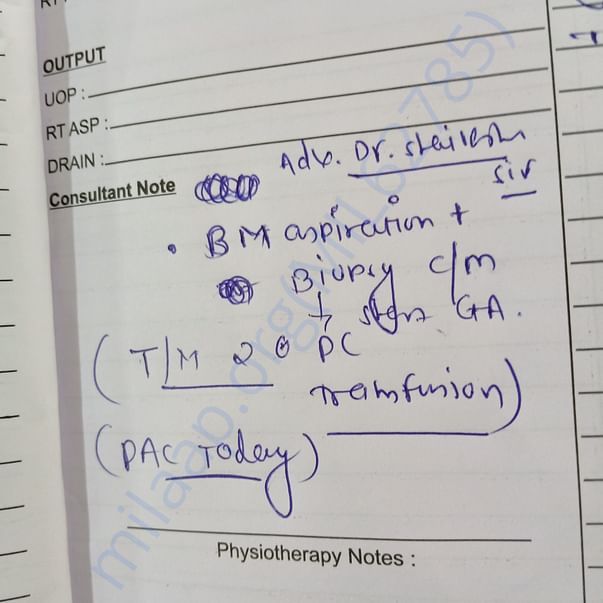 OUTPUT
UOP :
RT ASP :
DRAIN :
Consultant Note Adv. Dr. Shailesh
sir
• BM aspiration +
Biopsy c/m
GA.
(T/M 2 PC
Transfusion)
(PAC Today)
Physiotherapy Notes :
milaap.org(MIL662785)